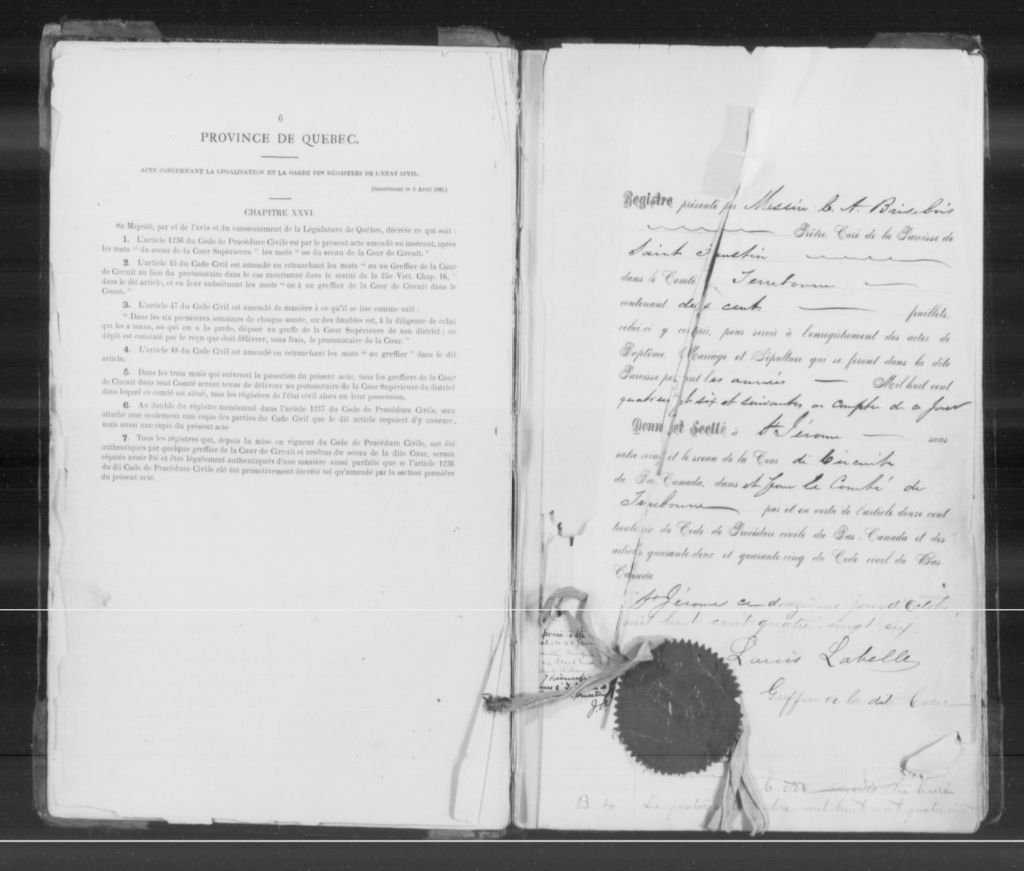 6
PROVINCE DE QUEBEC.
ACTE CONCERNANT LA LÉGALISATION ET LA GARDE DES RÉGISTRES DE L'ETAT CIVIL.
[Sanctionné le 5 Avril 1866.]
CHAPITRE XXVI.
Sa Majesté, par et de l'avis et du consentement de la Législature de Québec, décrète ce qui suit :
1. L'article 1236 du Code de Procédure Civile est par le présent acte amendé en insérant, après
les mots " du sceau de la Cour Supérieure " les mots " ou du sceau de la Cour de Circuit."
2. L'article 45 du Code Civil est amendé en retranchant les mots " ou au Greffier de la Cour
de Circuit au lieu du protonotaire dans le cas mentionné dans le statut de la 25e Vict. Chap. 16, "
dans le dit article, et en leur substituant les mots " ou à un greffier de la Cour de Circuit dans le
Comté."
3. L'article 47 du Code Civil est amendé de manière à ce qu'il se lise comme suit :
" Dans les six premières semaines de chaque année, un des doubles est, à la diligence de celui
qui les a tenus, ou qui en a la garde, déposé au greffe de la Cour Supérieure de son district ; ce
dépôt est constaté par le reçu que doit délivrer, sans frais, le protonotaire de la Cour. "
4. L'article 48 du Code Civil est amendé en retranchant les mots " on greffier " dans le dit
article.
5. Dans les trois mois qui suivront la passation du présent acte, tous les greffiers de la Cour
de Circuit dans tout Comté seront tenus de délivrer au protonotaire de la Cour Supérieure du district
dans lequel ce comté est situé, tous les régistres de l'état civil alors en leur possession.
6. Au double du régistre mentionné dans l'article 1237 du Code de Procédure Civile, sera
attaché non seulement une copie des parties du Code Civil que le dit article requiert d'y annexer,
mais aussi une copie du présent acte.
7. Tous les régistres qui, depuis la mise en vigueur du Code de Procédure Civile, ont été
authentiqués par quelque greffier de la Cour de Circuit et revêtus du sceau de la dite Cour, seront
réputés avoir été et être légalement authentiqués d'une manière aussi parfaite que si l'article 1236
du dit Code de Procédure Civile eût été primitivement décrété tel qu'amendé par la section première
du présent acte.
Registre présenté par Messire C. A. Brisebois
Prêtre, Curé de la Paroisse de
Saint Faustin
dans le Comté Terrebonne
contenant deux cents feuillets,
celui-ci y compris, pour servir à l'enregistrement des actes de
Baptême, Mariage et Sépulture qui se feront dans la dite
Paroisse pendant les années Mil huit cent
quatre vingt six et suivantes, à compter de ce jour
Donné et Scellé à St Jérome sous
notre seing et le sceau de la Cour de Circuit
du Bas Canada, dans et pour le Comté de
Terrebonne par et en vertu de l'article douze cent
trente-six du Code de Procédure civile du Bas-Canada et des
articles quarante-deux et quarante-cinq du Code civil du Bas
Canada.
St Jérome ce douzième jour d'Octobre
mil huit cent quatre-vingt six
Louis Labelle
Greffier de la dite Cour
B 1
huit cent quatre